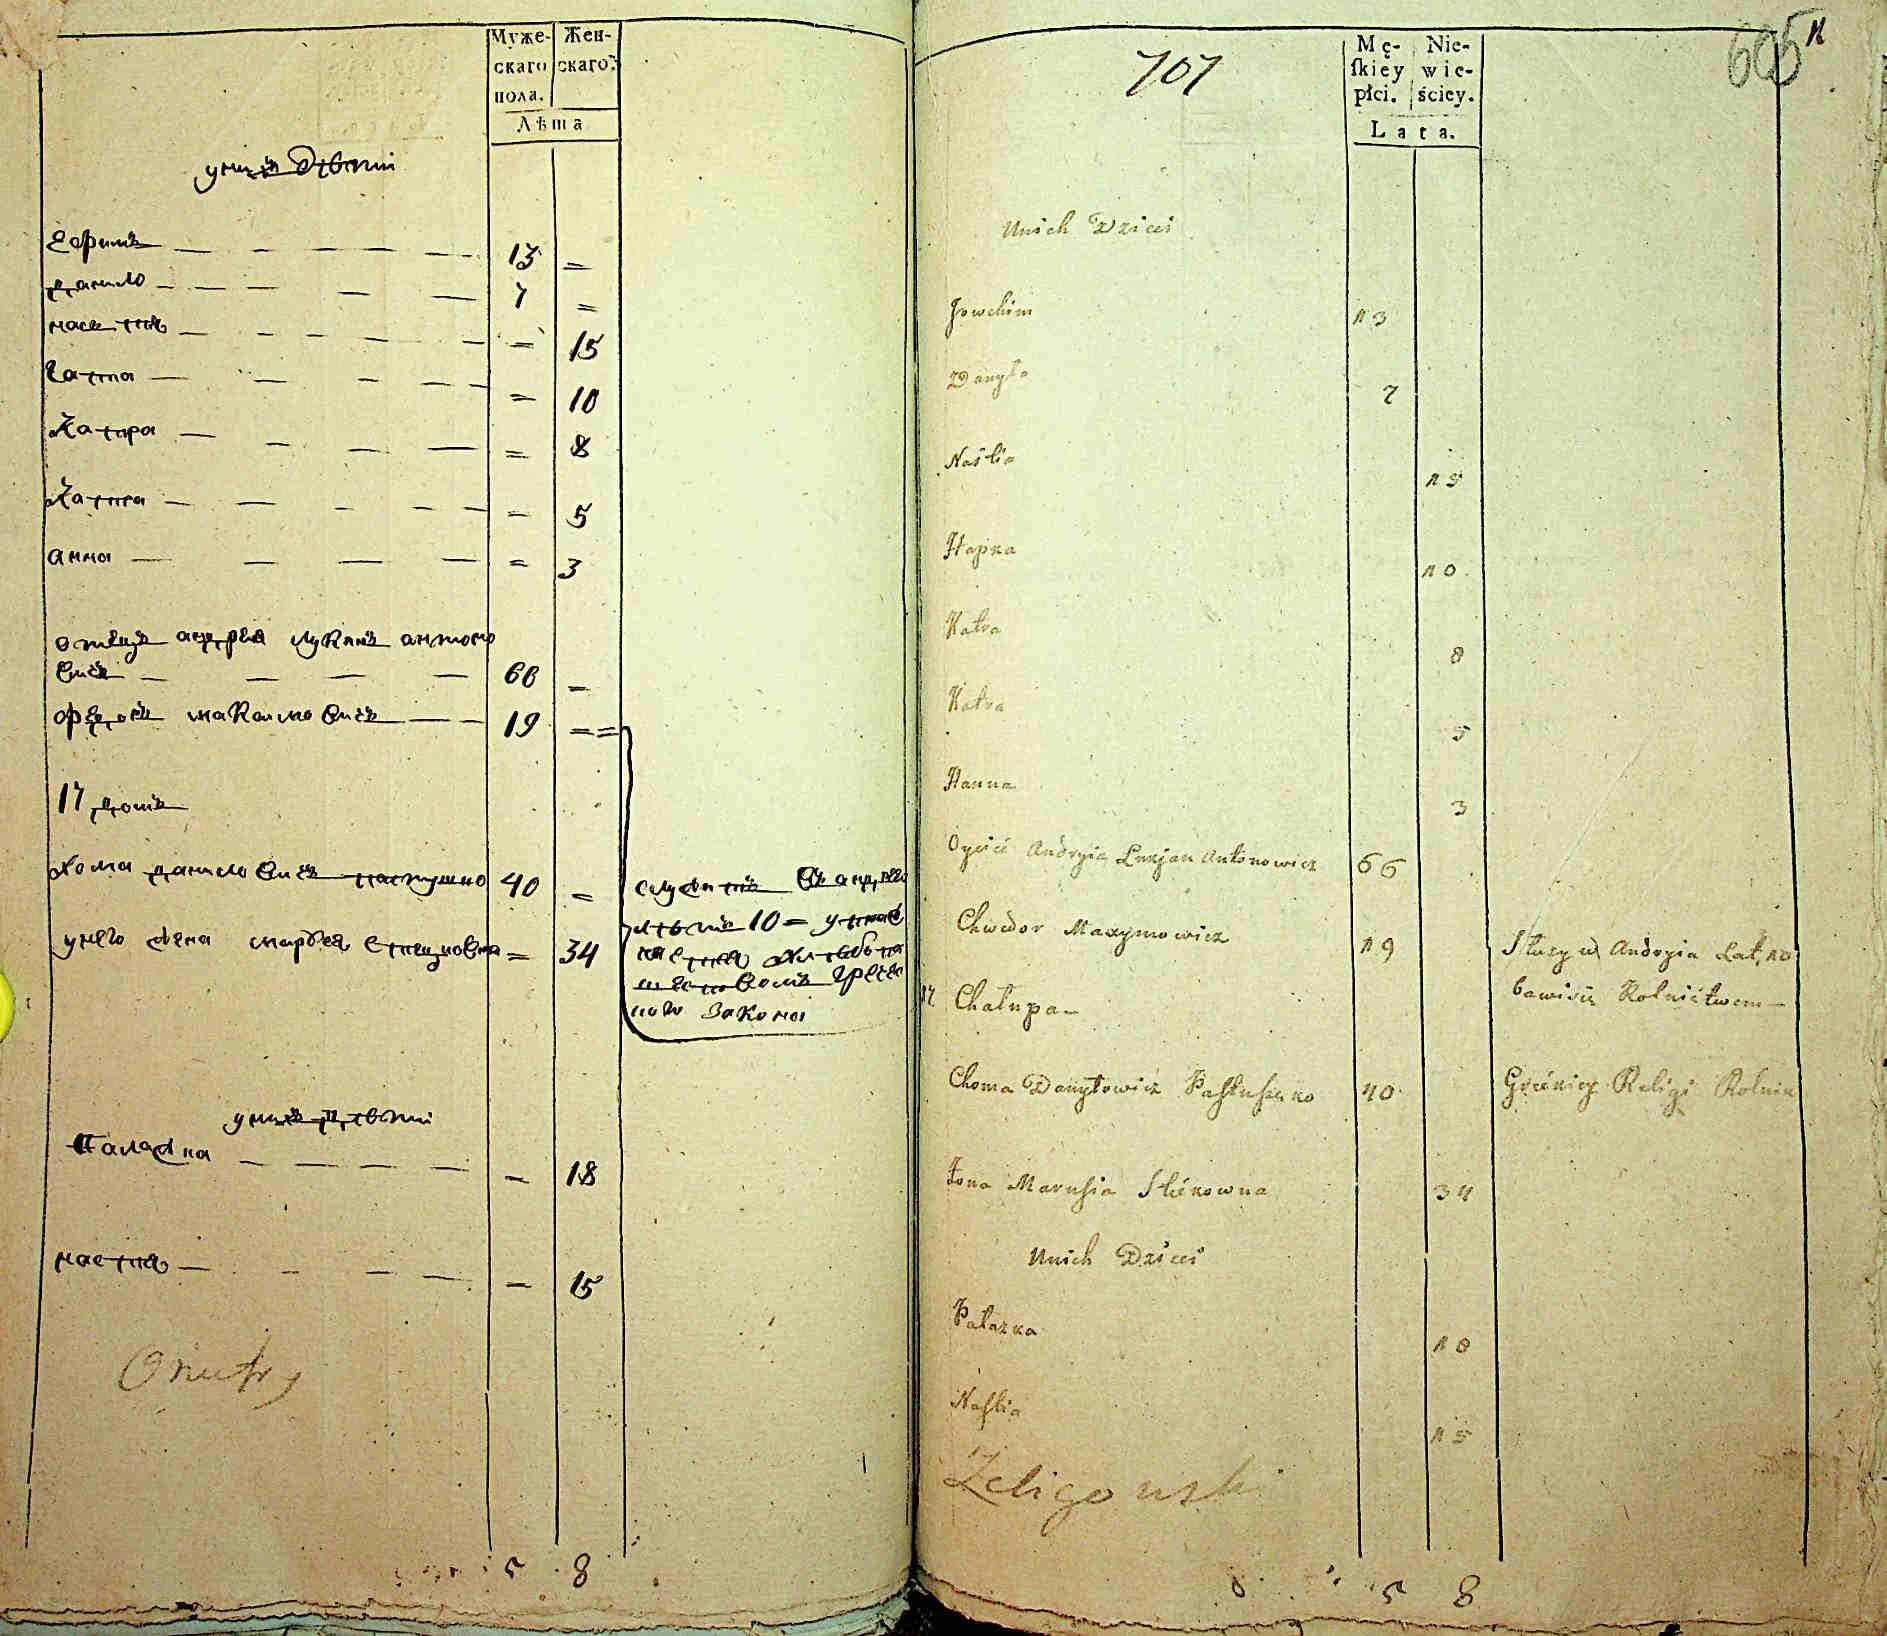 Муже-
скаго
пола.
Жен-
скаго:
Лѣта
уних дѣти
13 =
данило 7 =
настя = 15
Гапка = 10
Катра = 8
Катра = 5
анна = 3
отецъ андрея лукянъ антоно
вичъ 66 =
ѳедоръ максимовичъ 19 = =
17 домъ
хома даниловичъ пастушко 40 =
унего жена = 34
служитъ
лѣтъ 10 =
грече
ного закона
уних дѣти
Палажка = 18
настя = 15
5 8
707
695
11
Mę-
skiey
płci.
Nie-
wie-
ściey.
Lata.
Unich Dzieci
Jowchim 13
Danyło 7
Naśtia 15
Hapka 10
Katra 8
Katra 5
Hanna 3
Oyciec Andryia Łukjan Antonowicz 66
Chwedor Maxymowicz 19
Służy u Andryia Lat, 10
bawisię Rolnictwem
17 Chałupa
Choma Danyłowicz Pastuszko 40 Religi Rolnik
Żona Marusia 34
Unich Dzieci
Pałazka 18
Nastia 15
Zeligowski
5 8